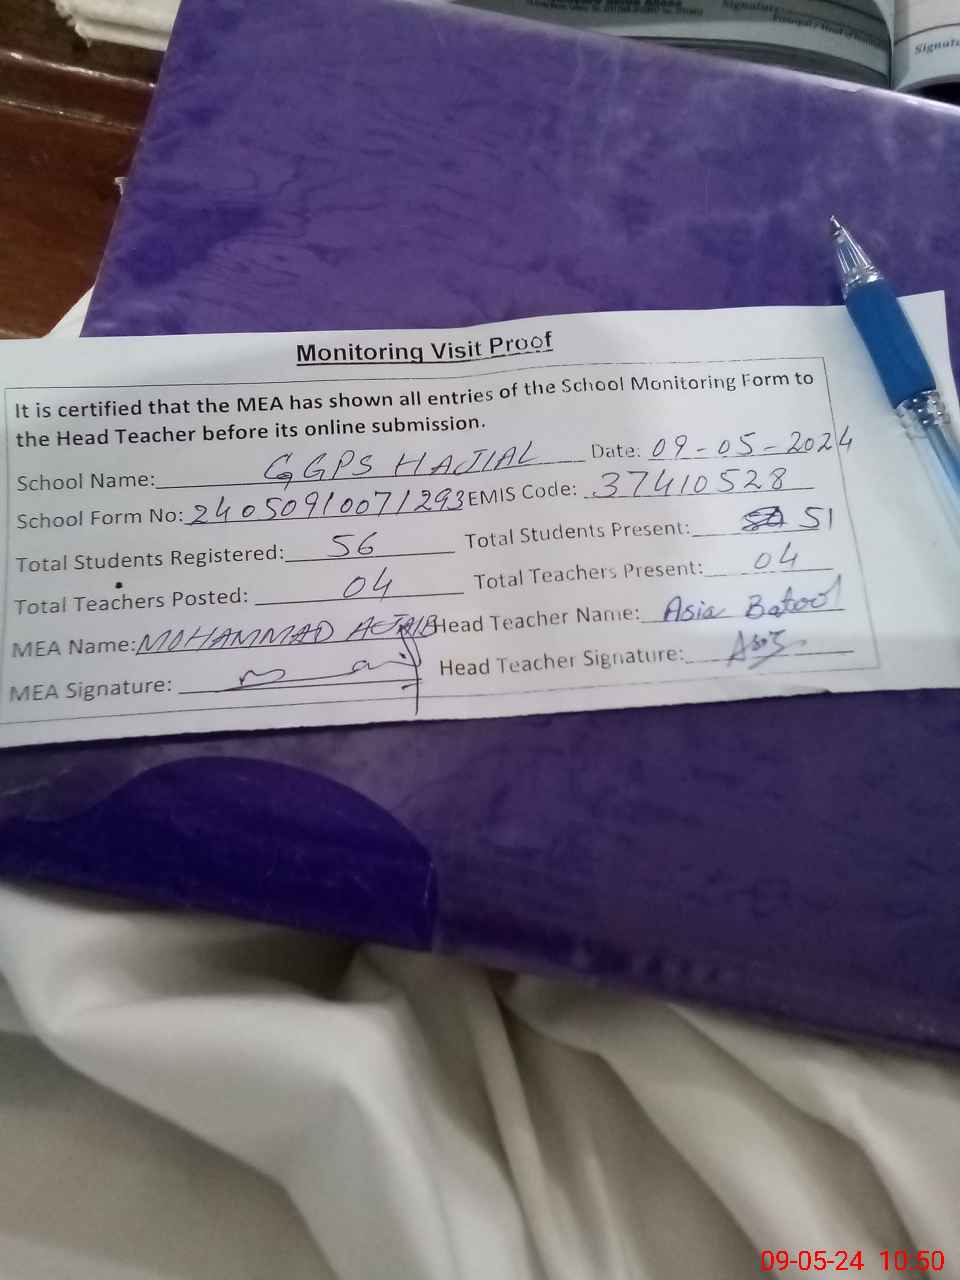 Signature
Signatu
Monitoring Visit Proof
It is certified that the MEA has shown all entries of the School Monitoring Form to
the Head Teacher before its online submission.
School Name: GGPS HAJIAL Date: 09-05-2024
School Form No: 24050910071293 EMIS Code: 37410528
Total Students Registered: 56 Total Students Present: 51
Total Teachers Posted: 04 Total Teachers Present: 04
MEA Name: MOHAMMAD AJAIB Head Teacher Name: Asia Batool
MEA Signature: Head Teacher Signature: Asia
09-05-24 10:50